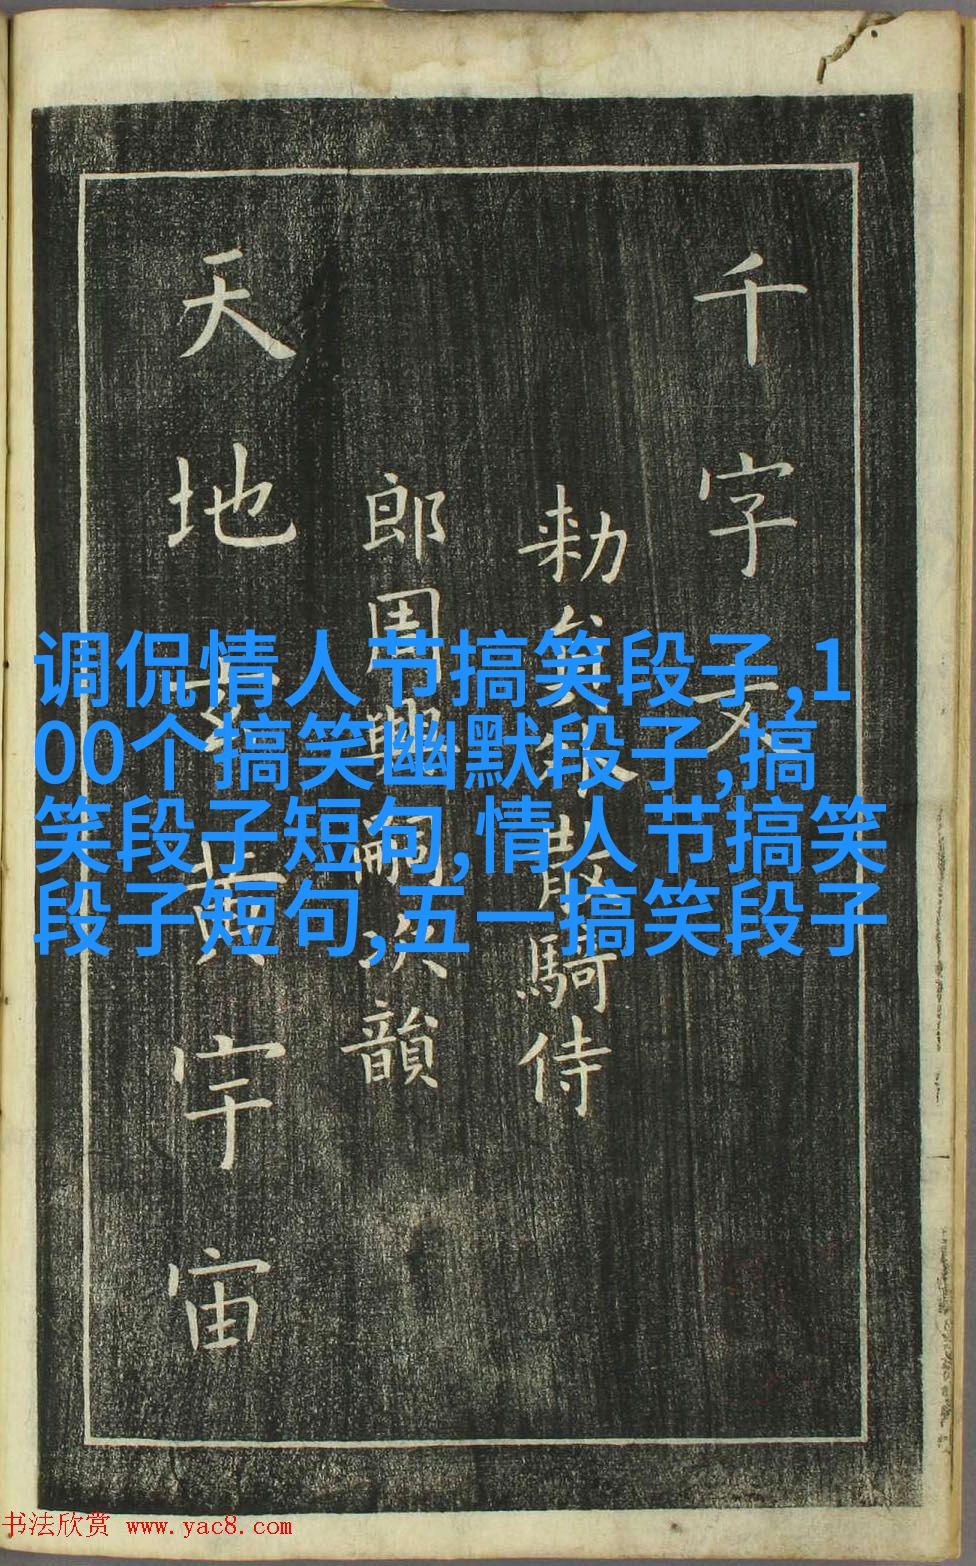 千字文
勑貟外散騎侍
郎周興嗣次韻
天地玄黃宇宙
调侃情人节搞笑段子,1
00个搞笑幽默段子,搞
笑段子短句,情人节搞笑
段子短句,五一搞笑段子
书法欣赏 www.yac8.com